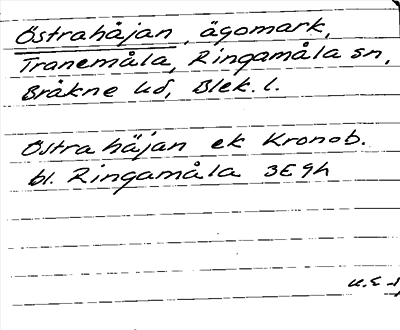 Östrahåjan, ägomark,
Tranemåla, Ringamåla sn,
Bräkne hd, Blek. l.
Östra häjan ek Kronob.
bl. Ringamåla 3E9h